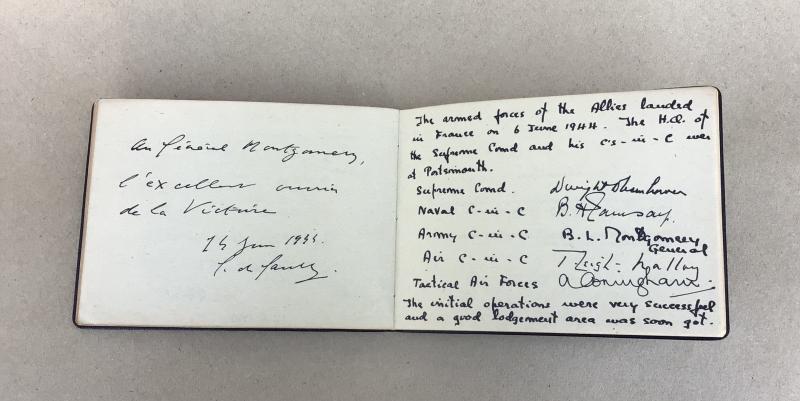 au Général Montgomery,
l'excellent ouvrier
de la Victoire
14 juin 1944.
C. de Gaulle.
The armed forces of the Allies landed
in France on 6 June 1944. The H.Q. of
the Supreme Comd and his C's-in-C were
at Portsmouth.
Supreme Comd. Dwight D Eisenhower
Naval C-in-C B. H. Ramsay.
Army C-in-C B. L. Montgomery
General
Air C-in-C T Leigh-Mallory
Tactical Air Forces A Coningham.
The initial operations were very successful
and a good lodgement area was soon got.